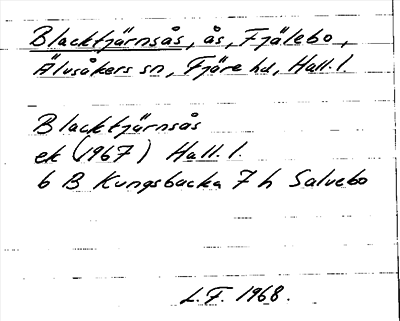 Blacktjärnsås, ås, Fjälebo,
Älvsåkers sn, Fjäre hd, Hall. l.
Blacktjärnsås
ek (1967) Hall. l.
6 B Kungsbacka 7 h Salvebo
L.F. 1968.